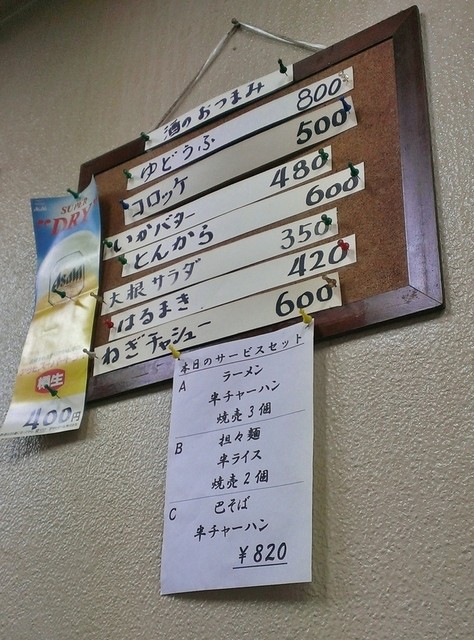 酒のおつまみ
ゆどうふ 800
コロッケ 500
いかバター 480
とんから 600
大根サラダ 350
はるまき 420
ねぎチャシュー 600
SUPER
"DRY"
Asahi
樽生
400円
本日のサービスセット
A ラーメン
半チャーハン
焼売3個
B 担々麺
半ライス
焼売2個
C 巴そば
半チャーハン
¥820